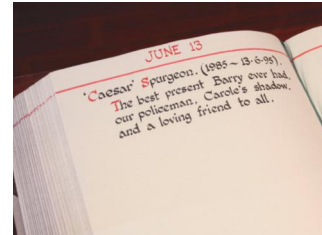 JUNE 13
'Caesar' Spurgeon. (1985 ~ 13·6·95).
The best present Barry ever had,
our policeman, Carole's shadow,
and a loving friend to all.